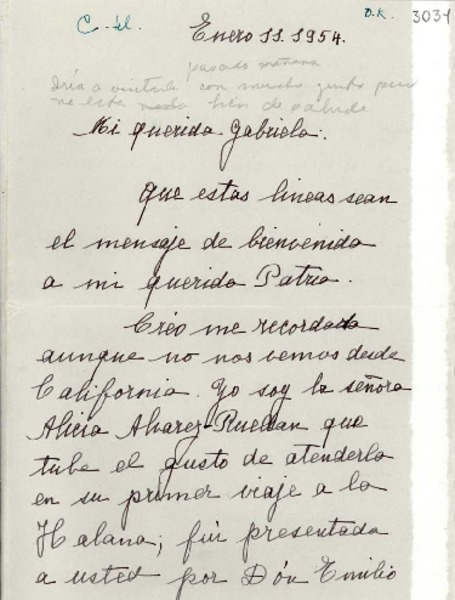 C. el.
D.R. 3034
Enero 11. 1954.
pasado mañana
Iría a visitarla con mucho gusto pero
no está nada bien de salud
Mi querida Gabriela:
Que estas lineas sean
el mensaje de bienvenida
a mi querida Patria.
Créo me recordada
aunque no nos vemos desde
California. Yo soy la señora
Alicia Alvarez-Ruedan que
tube el gusto de atenderla
en su primer viaje a la
Habana; fuí presentada
a usted por Dón Emilio